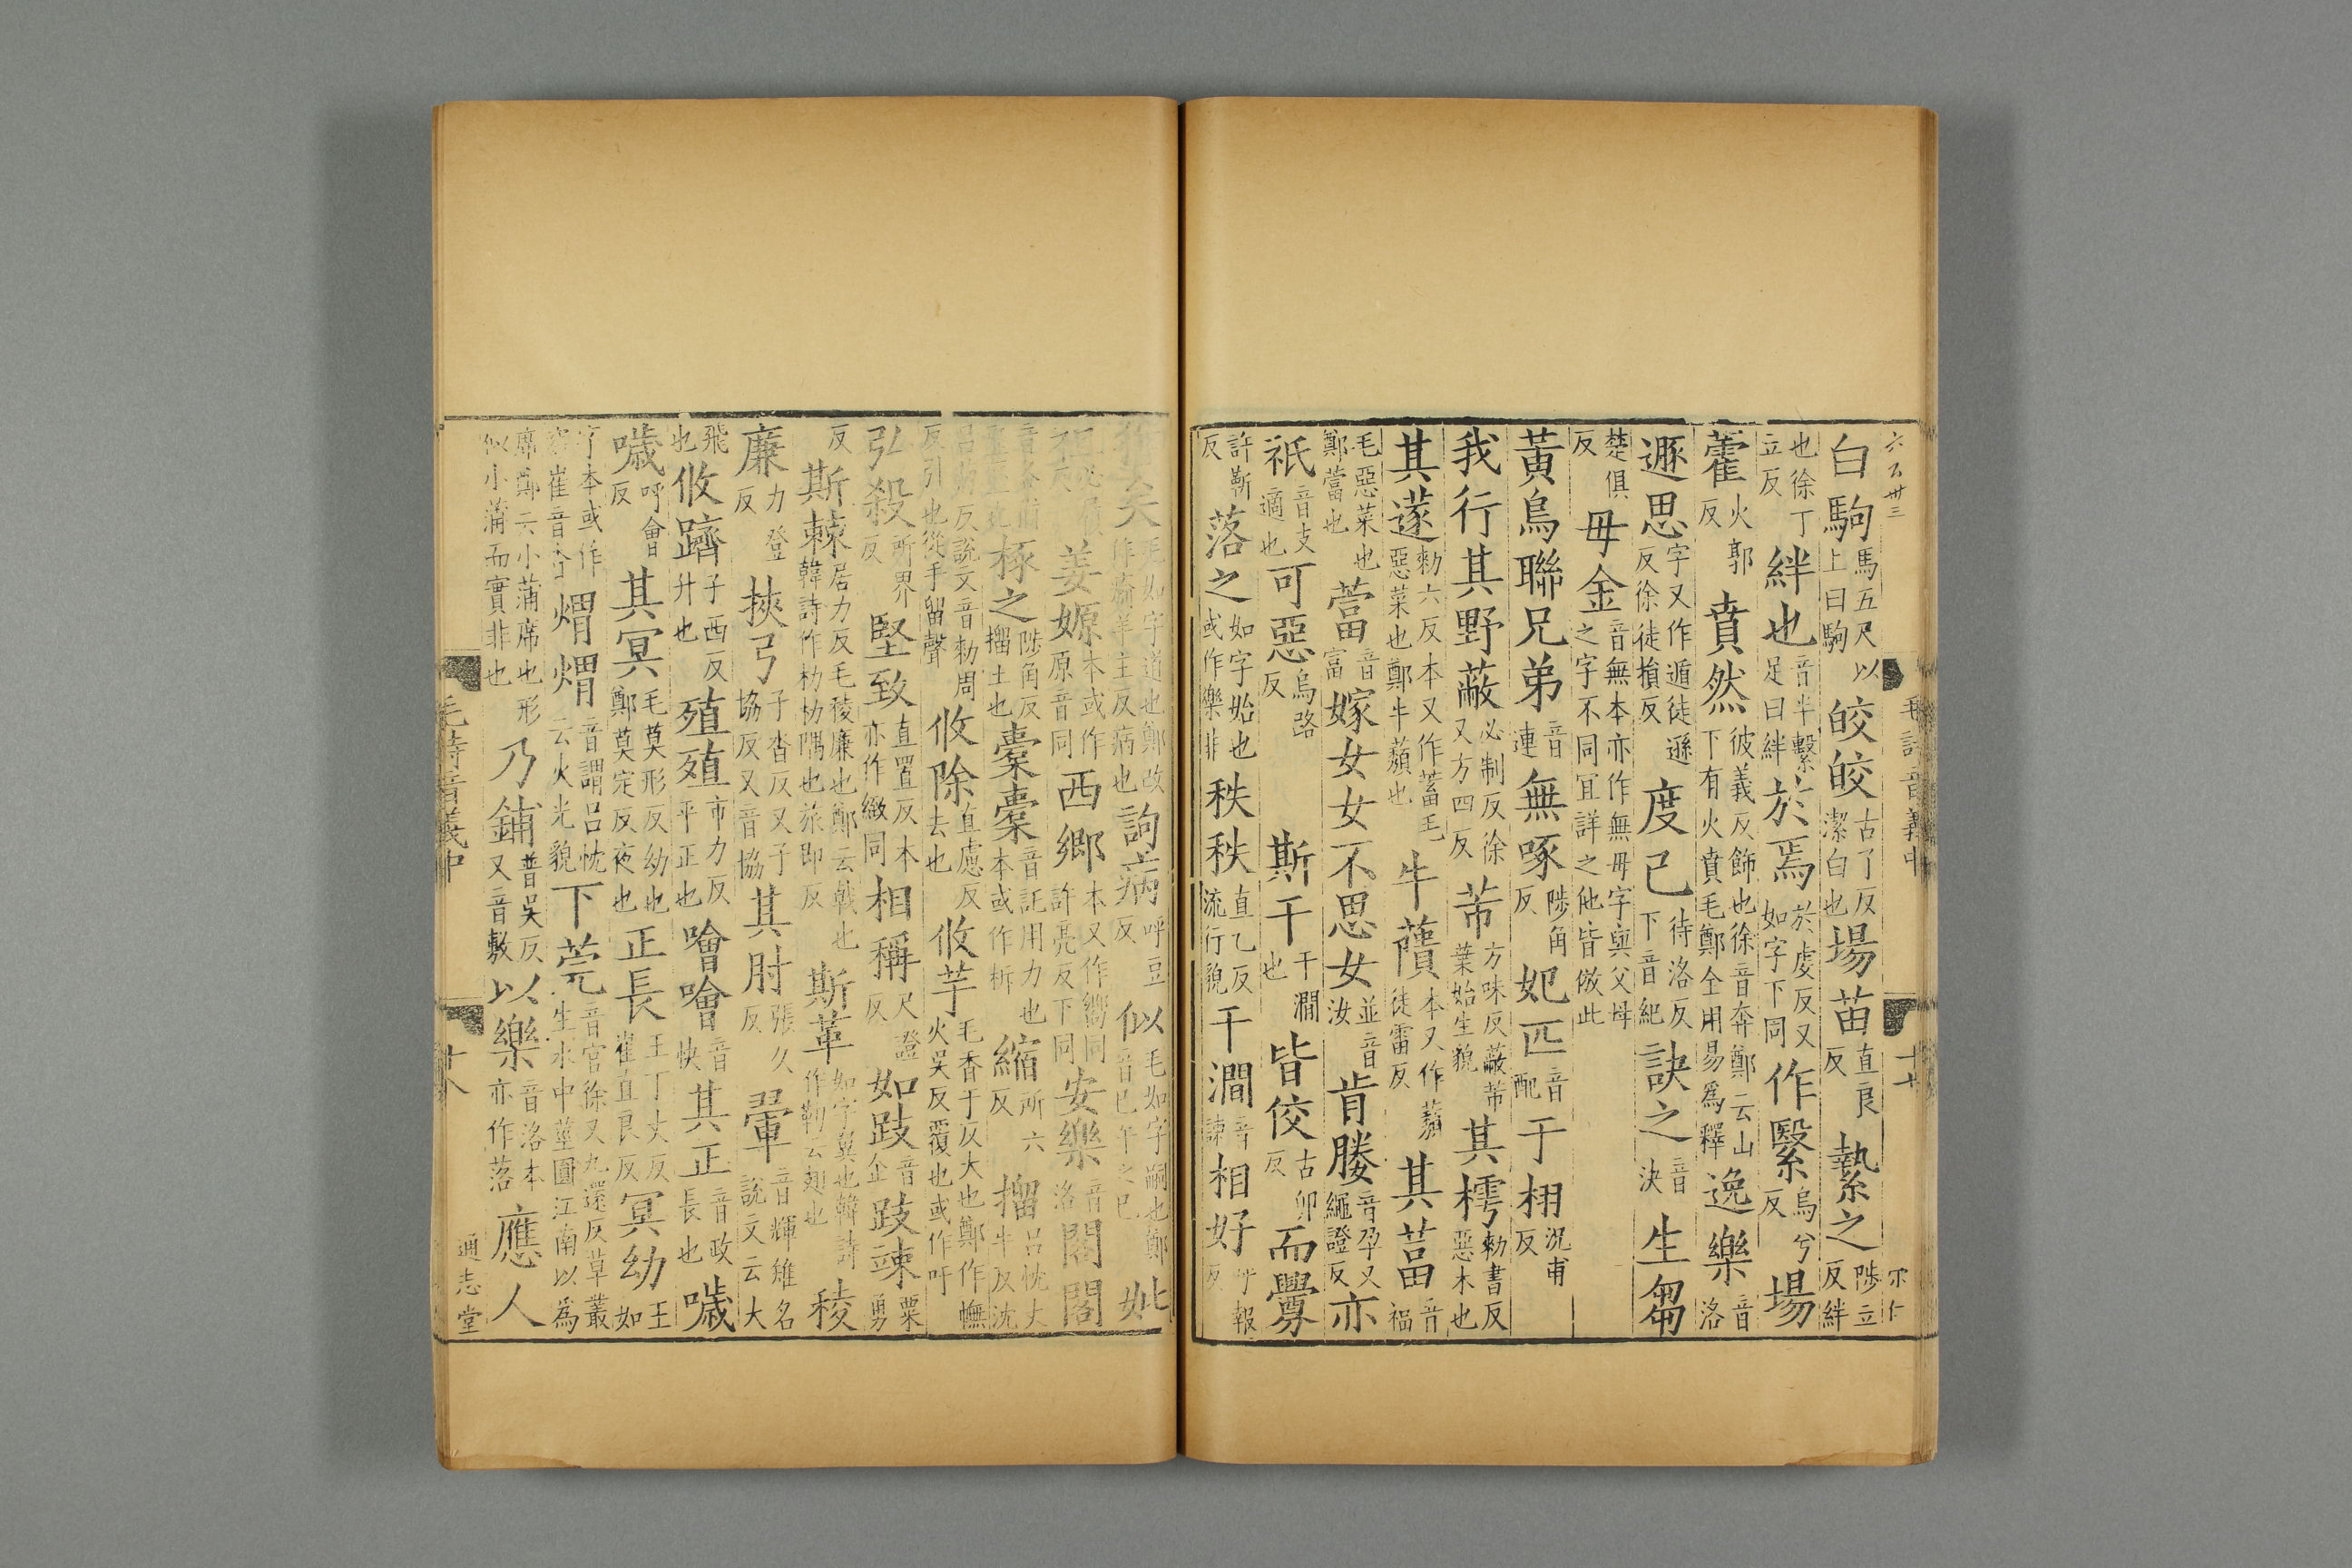 白駒馬五尺以上曰駒皎皎古了反潔白也場苗直良反縶之陟立反絆
也徐丁立反絆也音半繫足曰絆於焉於虔反又如字下同作繄烏兮反場
藿火郭反賁然彼義反飾也徐音奔鄭云山下有火賁毛鄭全用易爲釋逸樂音洛
遯思字又作遁徒遜反徐徒損反度已待洛反下音紀訣之音決生芻
楚俱反毋金音無本亦作無毋字與父母之字不同冝詳之他皆倣此
黃鳥聯兄弟音連無啄陟角反妃匹音配于栩況甫反
我行其野蔽必制反徐又方四反芾方味反蔽芾葉始生貌其樗勑書反惡木也
其蓫勑六反本又作蓄毛惡菜也鄭牛蘈也牛蘈本又作蘈徒雷反其葍音福
毛惡菜也鄭葍也葍音富嫁女女不思女並音汝肯媵音孕又繩證反亦
祇音支適也可惡烏路反斯干干澗也皆佼古卯反而釁
許靳反落之如字始也或作樂非秩秩直乙反流行貌干澗音諫相好呼報反
六〇卅三
毛詩音義中
十七
尔仁
猶矣毛如字道也鄭改作瘉羊主反病也詢病呼豆反似毛如字嗣也鄭音巳午之巳妣
必履反姜嫄本或作原音同西鄉本又作嚮同許亮反下同安樂音洛閣閣
音各椓之陟角反摺土也橐橐音託用力也本或作柝縮所六反摺呂忱丈牛反沈
呂反說文音勑周反引也從手留聲攸除直慮反去也攸芋毛香于反大也鄭作幠火吳反覆也或作吁
弘殺所界反堅致直置反本亦作緻同相稱尺證反如跂音企跂竦粟勇
反斯棘居力反毛稜廉也鄭云戟也韓詩作朸朸隅也旅即反斯革如字翼也韓詩作勒云翅也稜
廉力登反挾弓子沓反又子協反又音協其肘張久反翬音輝雉名說文云大
飛也攸躋子西反升也殖殖市力反平正也噲噲音快其正音政長也噦
噦呼會反其冥毛莫形反幼也鄭莫定反夜也正長王丁丈反崔直良反冥幼王如
字本或作窈崔音杳煟煟音謂呂忱云火光貌下莞音官徐又九還反草叢生水中莖圓江南以爲
席鄭云小蒲席也形似小蒲而實非也乃鋪普吳反又音敷以樂音洛本亦作落應人
毛詩音義中
十八
通志堂